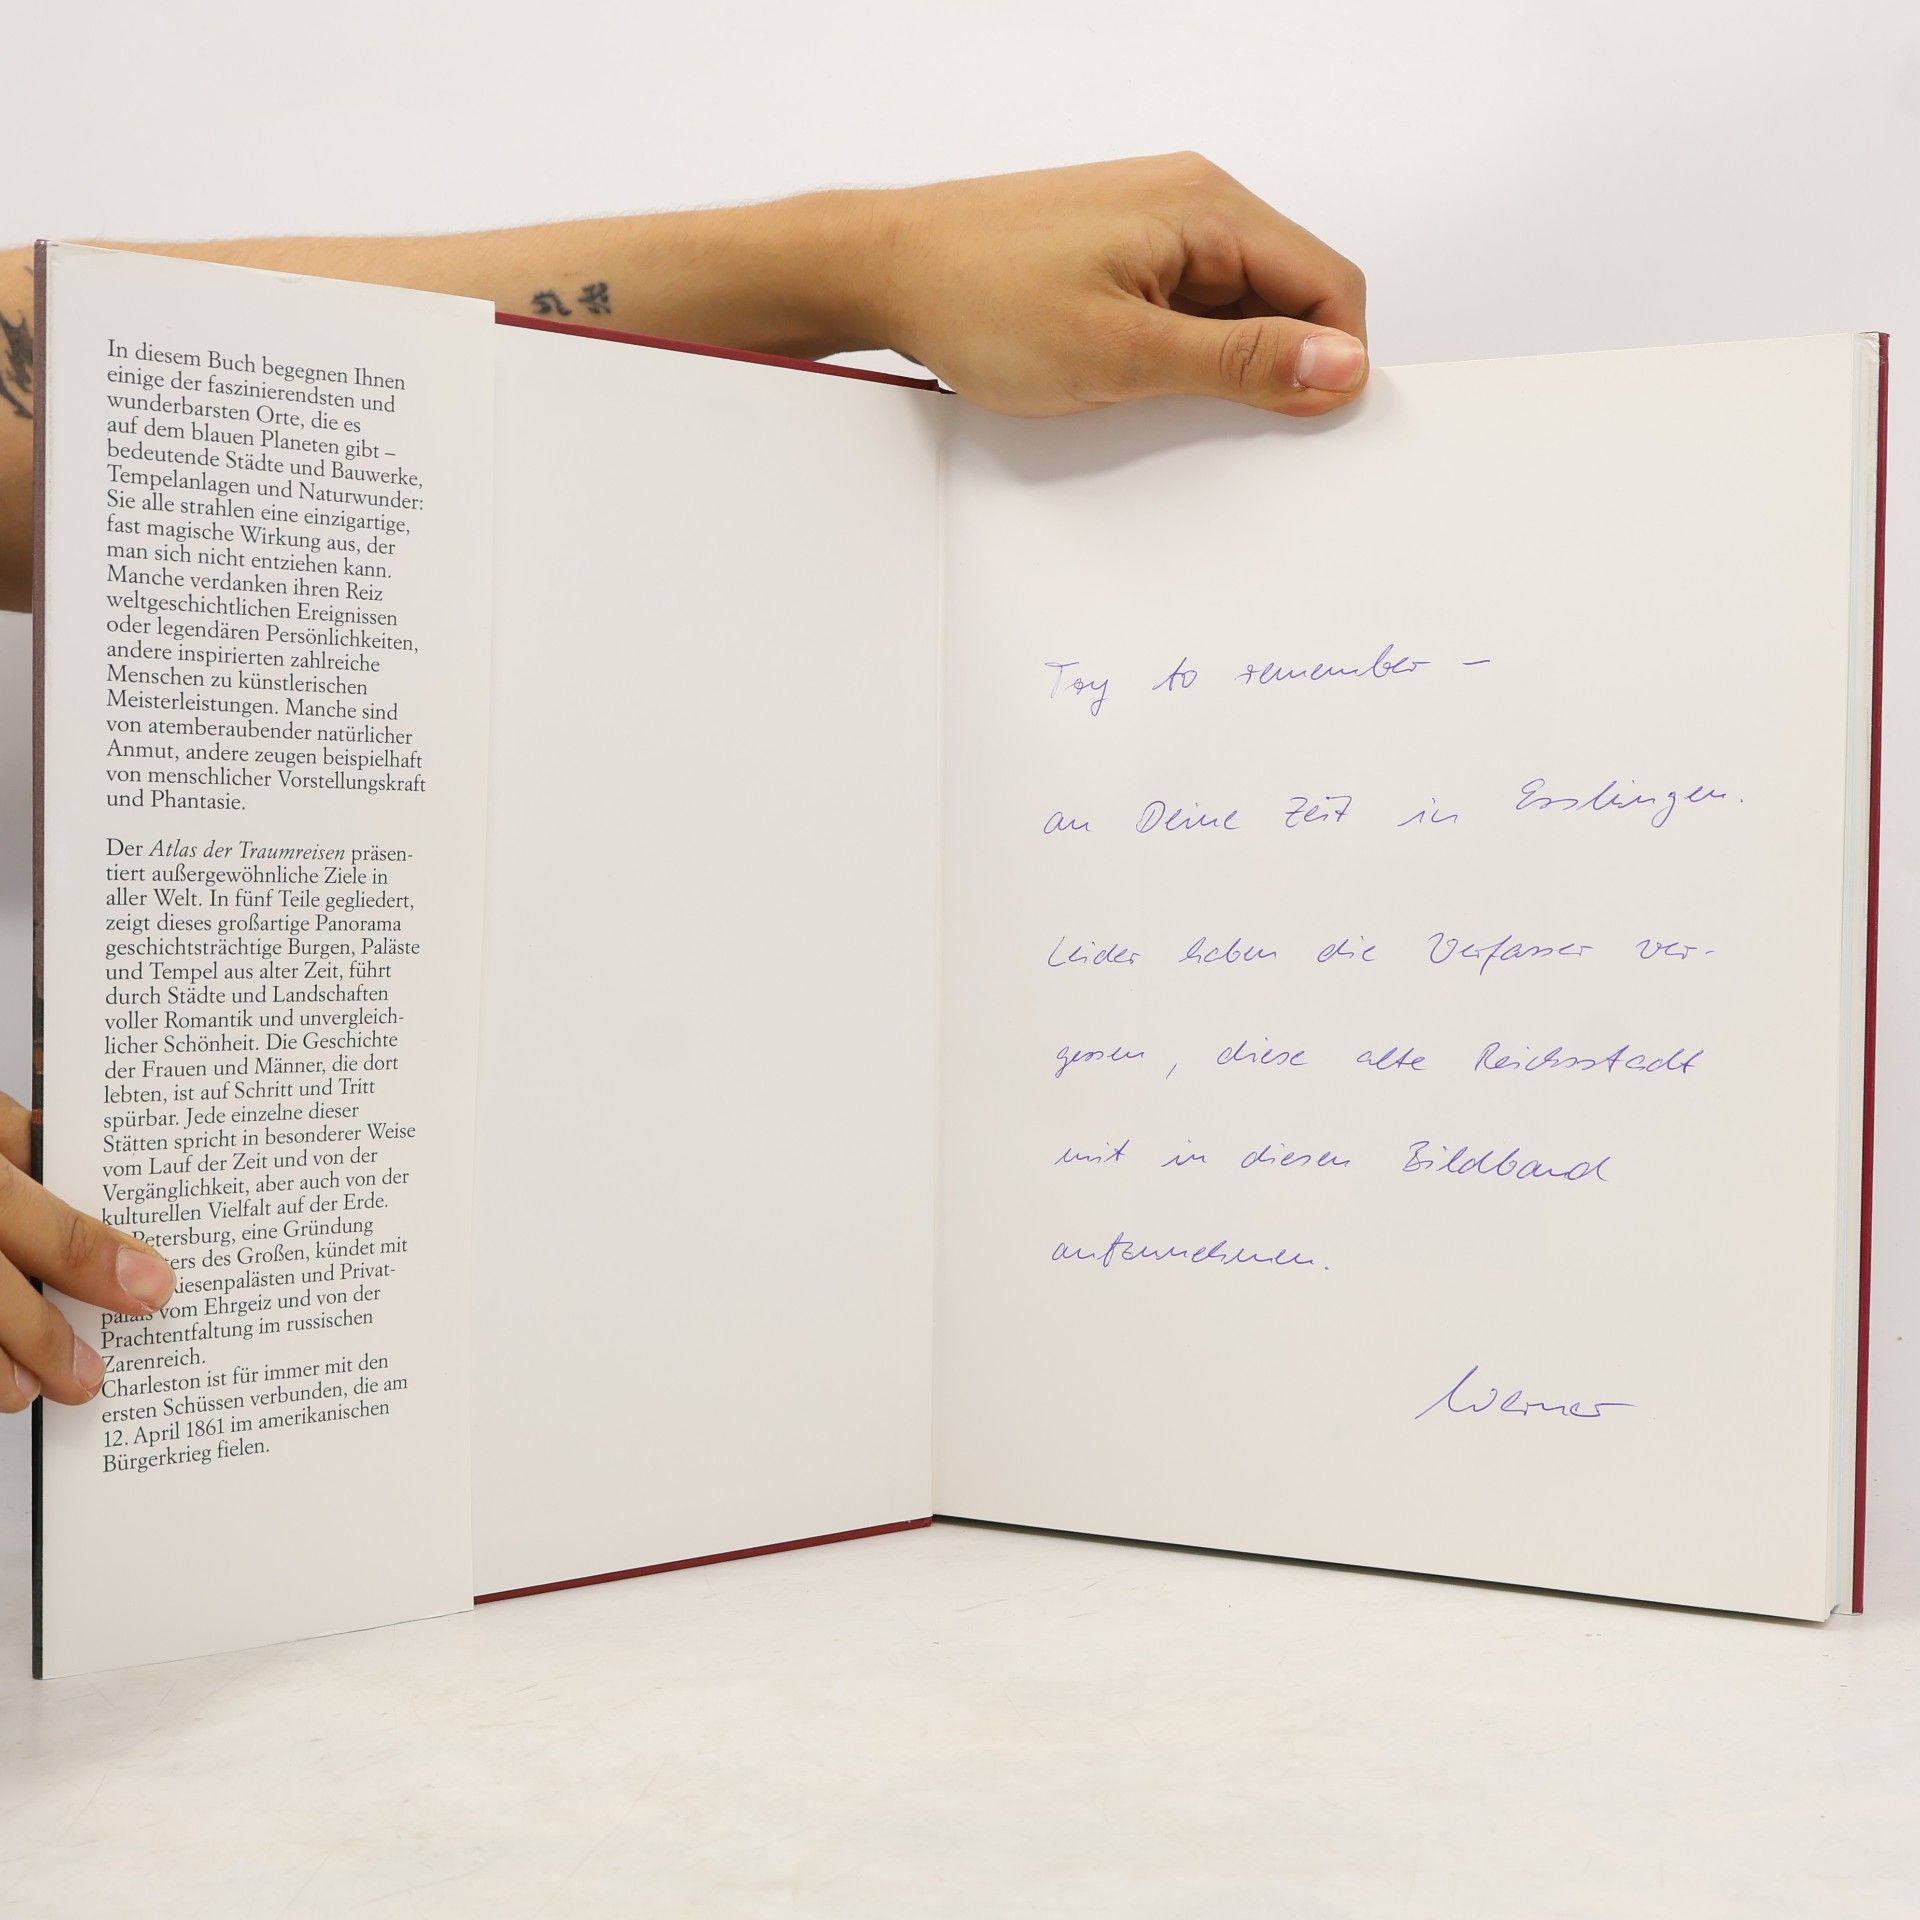 In diesem Buch begegnen Ihnen
einige der faszinierendsten und
wunderbarsten Orte, die es
auf dem blauen Planeten gibt –
bedeutende Städte und Bauwerke,
Tempelanlagen und Naturwunder:
Sie alle strahlen eine einzigartige,
fast magische Wirkung aus, der
man sich nicht entziehen kann.
Manche verdanken ihren Reiz
weltgeschichtlichen Ereignissen
oder legendären Persönlichkeiten,
andere inspirierten zahlreiche
Menschen zu künstlerischen
Meisterleistungen. Manche sind
von atemberaubender natürlicher
Anmut, andere zeugen beispielhaft
von menschlicher Vorstellungskraft
und Phantasie.
Der Atlas der Traumreisen präsen-
tiert außergewöhnliche Ziele in
aller Welt. In fünf Teile gegliedert,
zeigt dieses großartige Panorama
geschichtsträchtige Burgen, Paläste
und Tempel aus alter Zeit, führt
durch Städte und Landschaften
voller Romantik und unvergleich-
licher Schönheit. Die Geschichte
der Frauen und Männer, die dort
lebten, ist auf Schritt und Tritt
spürbar. Jede einzelne dieser
Stätten spricht in besonderer Weise
vom Lauf der Zeit und von der
Vergänglichkeit, aber auch von der
kulturellen Vielfalt auf der Erde.
Petersburg, eine Gründung
des Großen, kündet mit
und Privat-
palais vom Ehrgeiz und von der
Prachtentfaltung im russischen
Zarenreich.
Charleston ist für immer mit den
ersten Schüssen verbunden, die am
12. April 1861 im amerikanischen
Bürgerkrieg fielen.
Try to remember –
an Deine Zeit in Esslingen.
Leider haben die Verfasser ver-
gessen, diese alte Reichsstadt
mit in diesen Bildband
aufzunehmen.
Werner